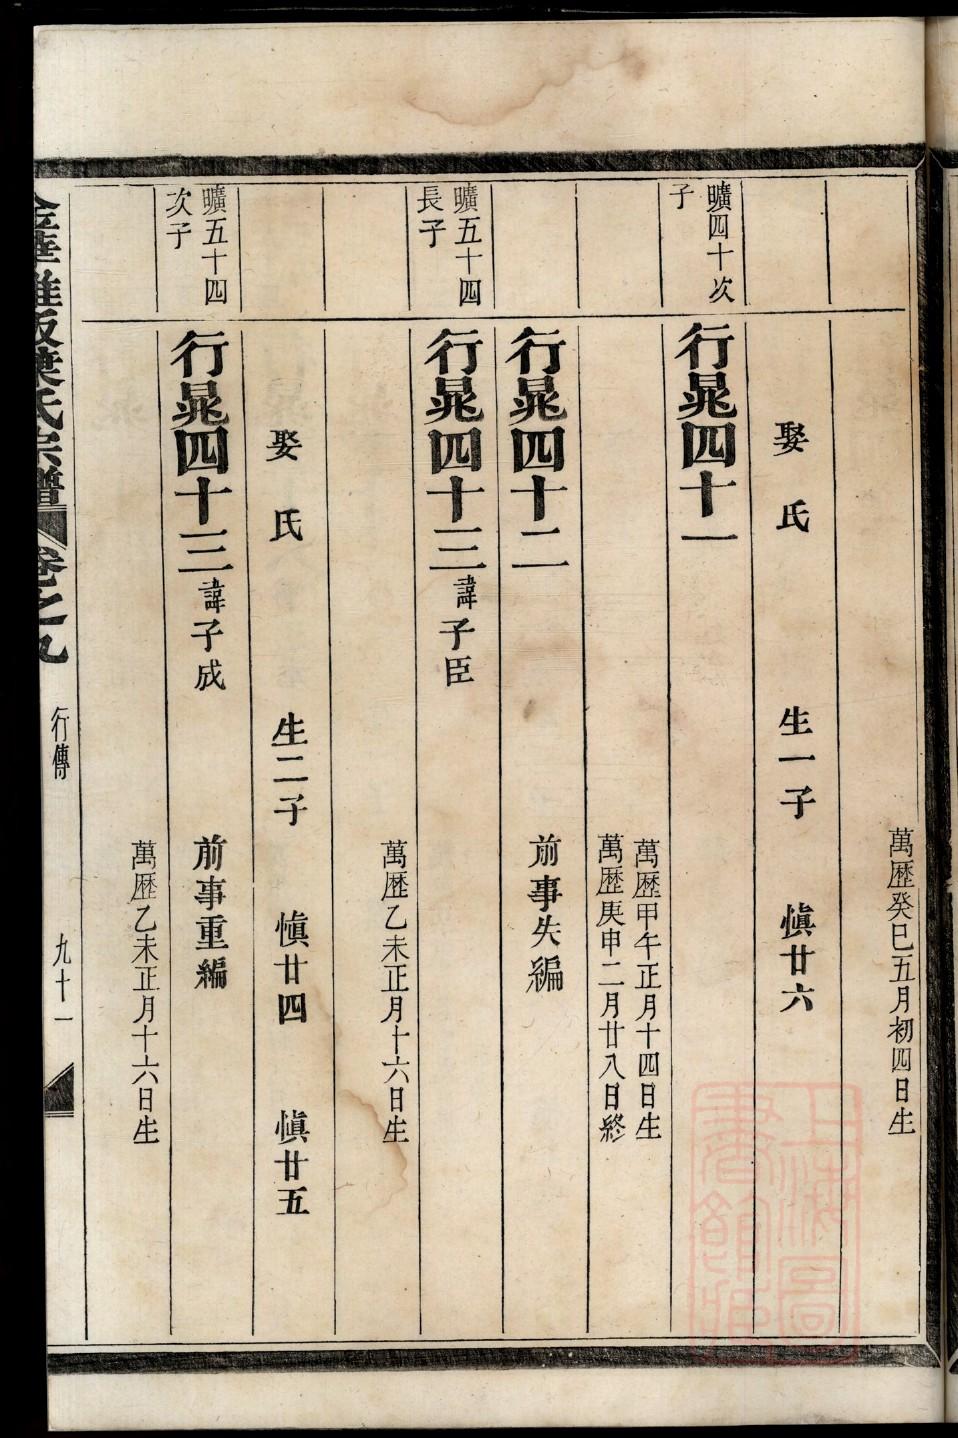 萬歷癸巳五月初四日生
娶 氏 生一子 慎廿六
曠四十次
子
行晁四十一
萬歷甲午正月十四日生
萬歷庚申二月廿八日終
行晁四十二 前事失編
曠五十四
長子
行晁四十三 諱子臣
萬歷乙未正月十六日生
娶 氏 生二子 慎廿四 慎廿五
曠五十四
次子
行晁四十三 諱子成 前事重編
萬歷乙未正月十六日生
金華雅畈葉氏宗譜 卷之九 行傳 九十一
上海圖
書館藏